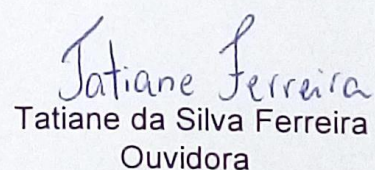 Tatiane Ferreira
Tatiane da Silva Ferreira
Ouvidora